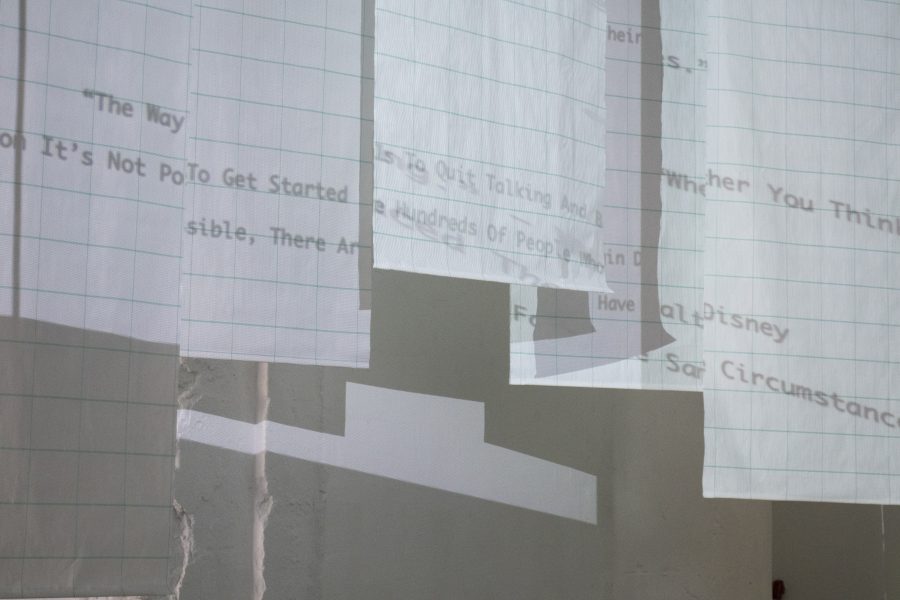 heir
s.”
“The Way To Get Started Is To Quit Talking And B in D
on It’s Not Po sible, There Ar e Hundreds Of People Who Have
“Whe her You Think
alt Disney
Sa Circumstance